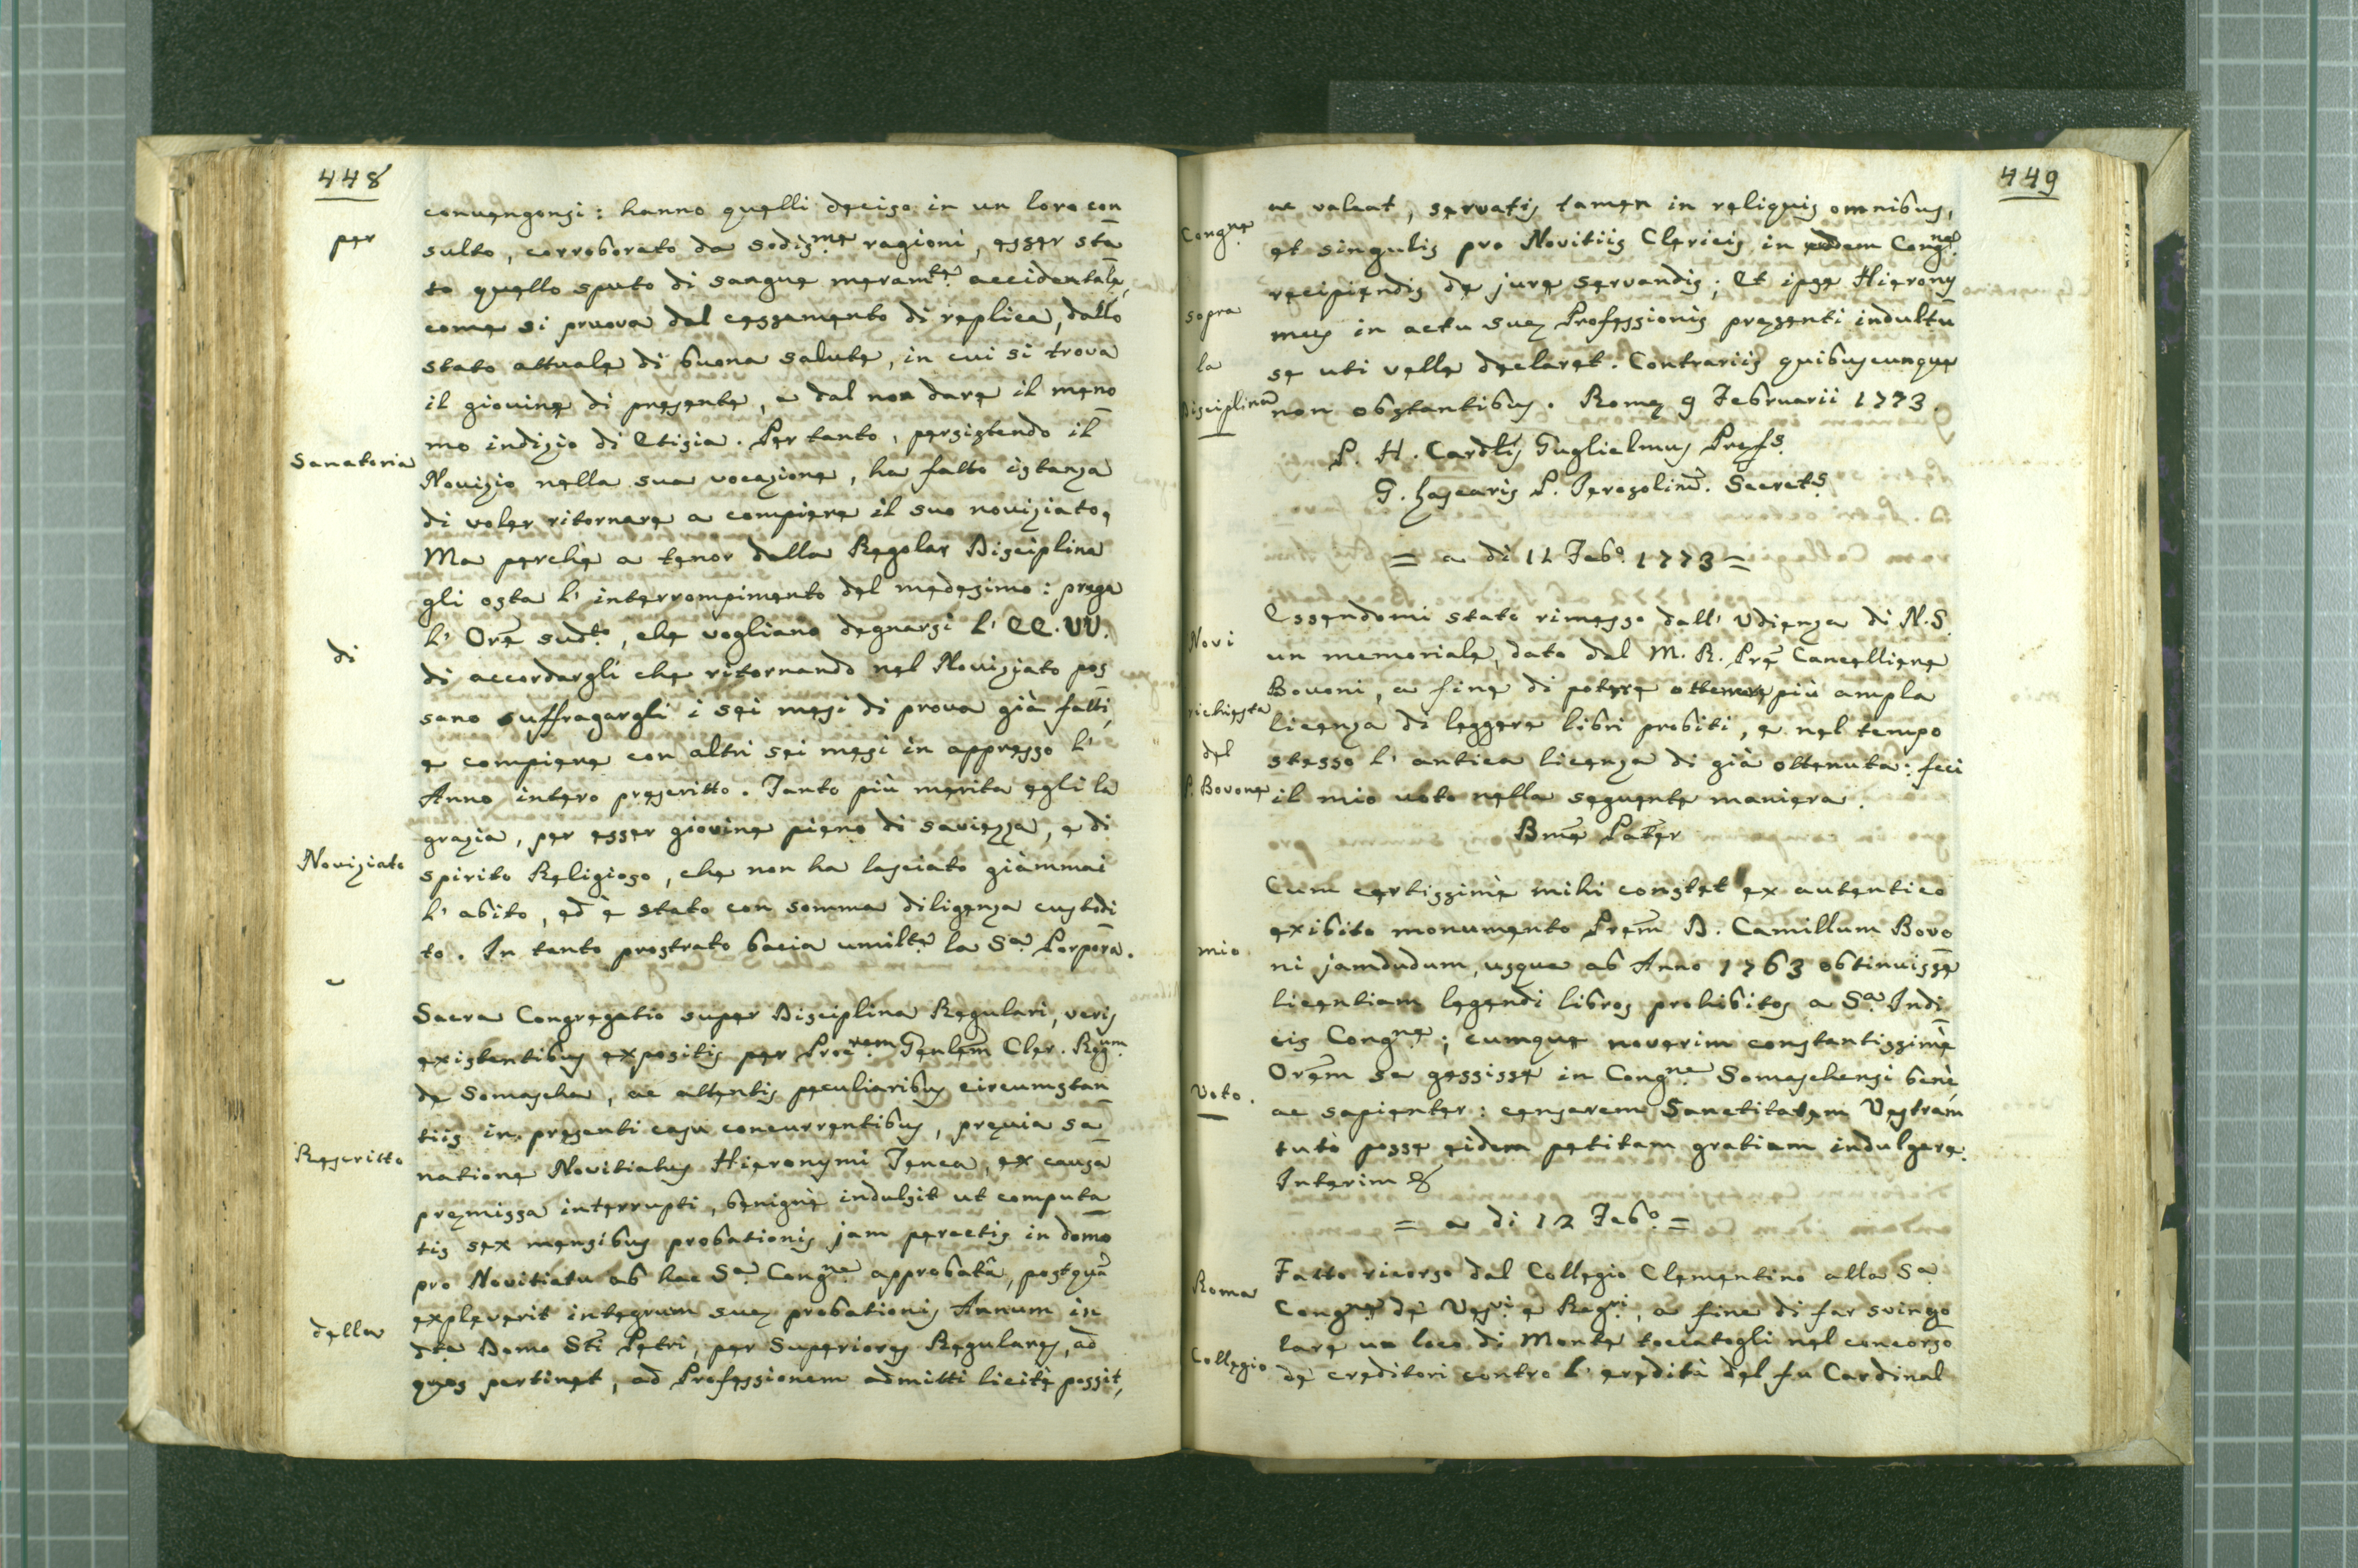 448
per
Sanatoria
di
Noviziato
e
Rescritto
della
convengonsi: hanno quelli deciso in un loro con
sulto, corroborato da sodis.me ragioni, esser sta
to quello sputo di sangue meram.te accidentale,
come si pruova dal cessamento di replica, dallo
stato attuale di buona salute, in cui si trova
il giovine di presente, e dal non dare il meno
mo indizio di Etisia. Per tanto, persistendo il
Novizio nella sua vocazione, ha fatto istanza
di voler ritornare a compiere il suo noviziato,
Ma perchè a tenor della Regolar Disciplina
gli osta l' interrompimento del medesimo: prega
l' Ore sud.to, che vogliano degnarsi l' EE. VV.
di accordargli che ritornando nel Noviziato pos
sano suffragargli i sei mesi di prova già fatti,
e compiere con altri sei mesi in appresso l'
Anno intero prescritto. Tanto più merita egli la
grazia, per esser giovine pieno di saviezza, e di
spirito Religioso, che non ha lasciato giàmmai
l' abito, ed è stato con somma diligenza custodi
to. In tanto prostrato bacia umilte la S.a Porpora.
Sacra Congregatio super Disciplina Regulari, veris
existentibus expositis per Proc.rem Genlem Cler. Reg.um
de Somascha, ac attentis peculiaribus circumstan
tiis in presenti casu concurrentibus, previa sa
natione Novitiatus Hieronymi Tenca, ex causa
premissa interrupti, benignè indulsit ut computa
tis sex mensibus probationis jam peractis in domo
pro Novitiatu ab hac S.a Cong.ne approbatâ, postquã
expleverit integrum suę probationis Annum in
dta Domo Sti Petri, per Superiores Regulares, ad
quos pertinet, ad Professionem admitti licitè possit,
449
Cong.ne
sopra
la
Disciplina
Novi
richiesta
del
P. Bovone
mio
Voto.
Roma
Collegio
ac valeat, servatis tamen in reliquis omnibus,
et singulis pro Novitiis Clericis in eadem Cong.ne
recipiendis de jure servandis; Et ipse Hierony
mus in actu suę Professionis presenti indultu
se uti velle declaret. Contrariis quibuscunque
non obstantibus. Romę 9 Februarii 1773.
P. H. Cardlis Guglielmus Pref.s
G. Lascaris P. Ierosolim. Secret.s
= a di 11 Feb.o 1773 =
Essendomi stato rimesso dall' Udienza di N.S.
un memoriale, dato dal M. R. Pre Cancelliere
Bovoni, a fine di potere ottenere più ampla
licenza di leggere libri probiti, e nel tempo
stesso l' antica licenza di già ottenuta: feci
il mio voto nella seguente maniera.
Bme Pater
Cum certissimè mihi constet ex autentico
exibito monumento Prem D. Camillum Bovo
ni jamdudum, usque ab Anno 1763 obtinuisse
licentiam legendi libros prohibitos a S.a Indi
cis Cong.ne; cumque noverim constantissimè
Orem se gessisse in Cong.ne Somaschensi benè,
ac sapienter: censerem Sanctitatem Vestram
tutò posse eidem petitam gratiam indulgere.
Interim &
= a di 12 Feb.o =
Fatto ricorso dal Collegio Clementino alla S.a
Cong.ne de' Ves.vi e Reg.ri, a fine di far svinco
lare un loco di Monte toccatogli nel concorso
de' creditori contro l' eredità del fu Cardinal